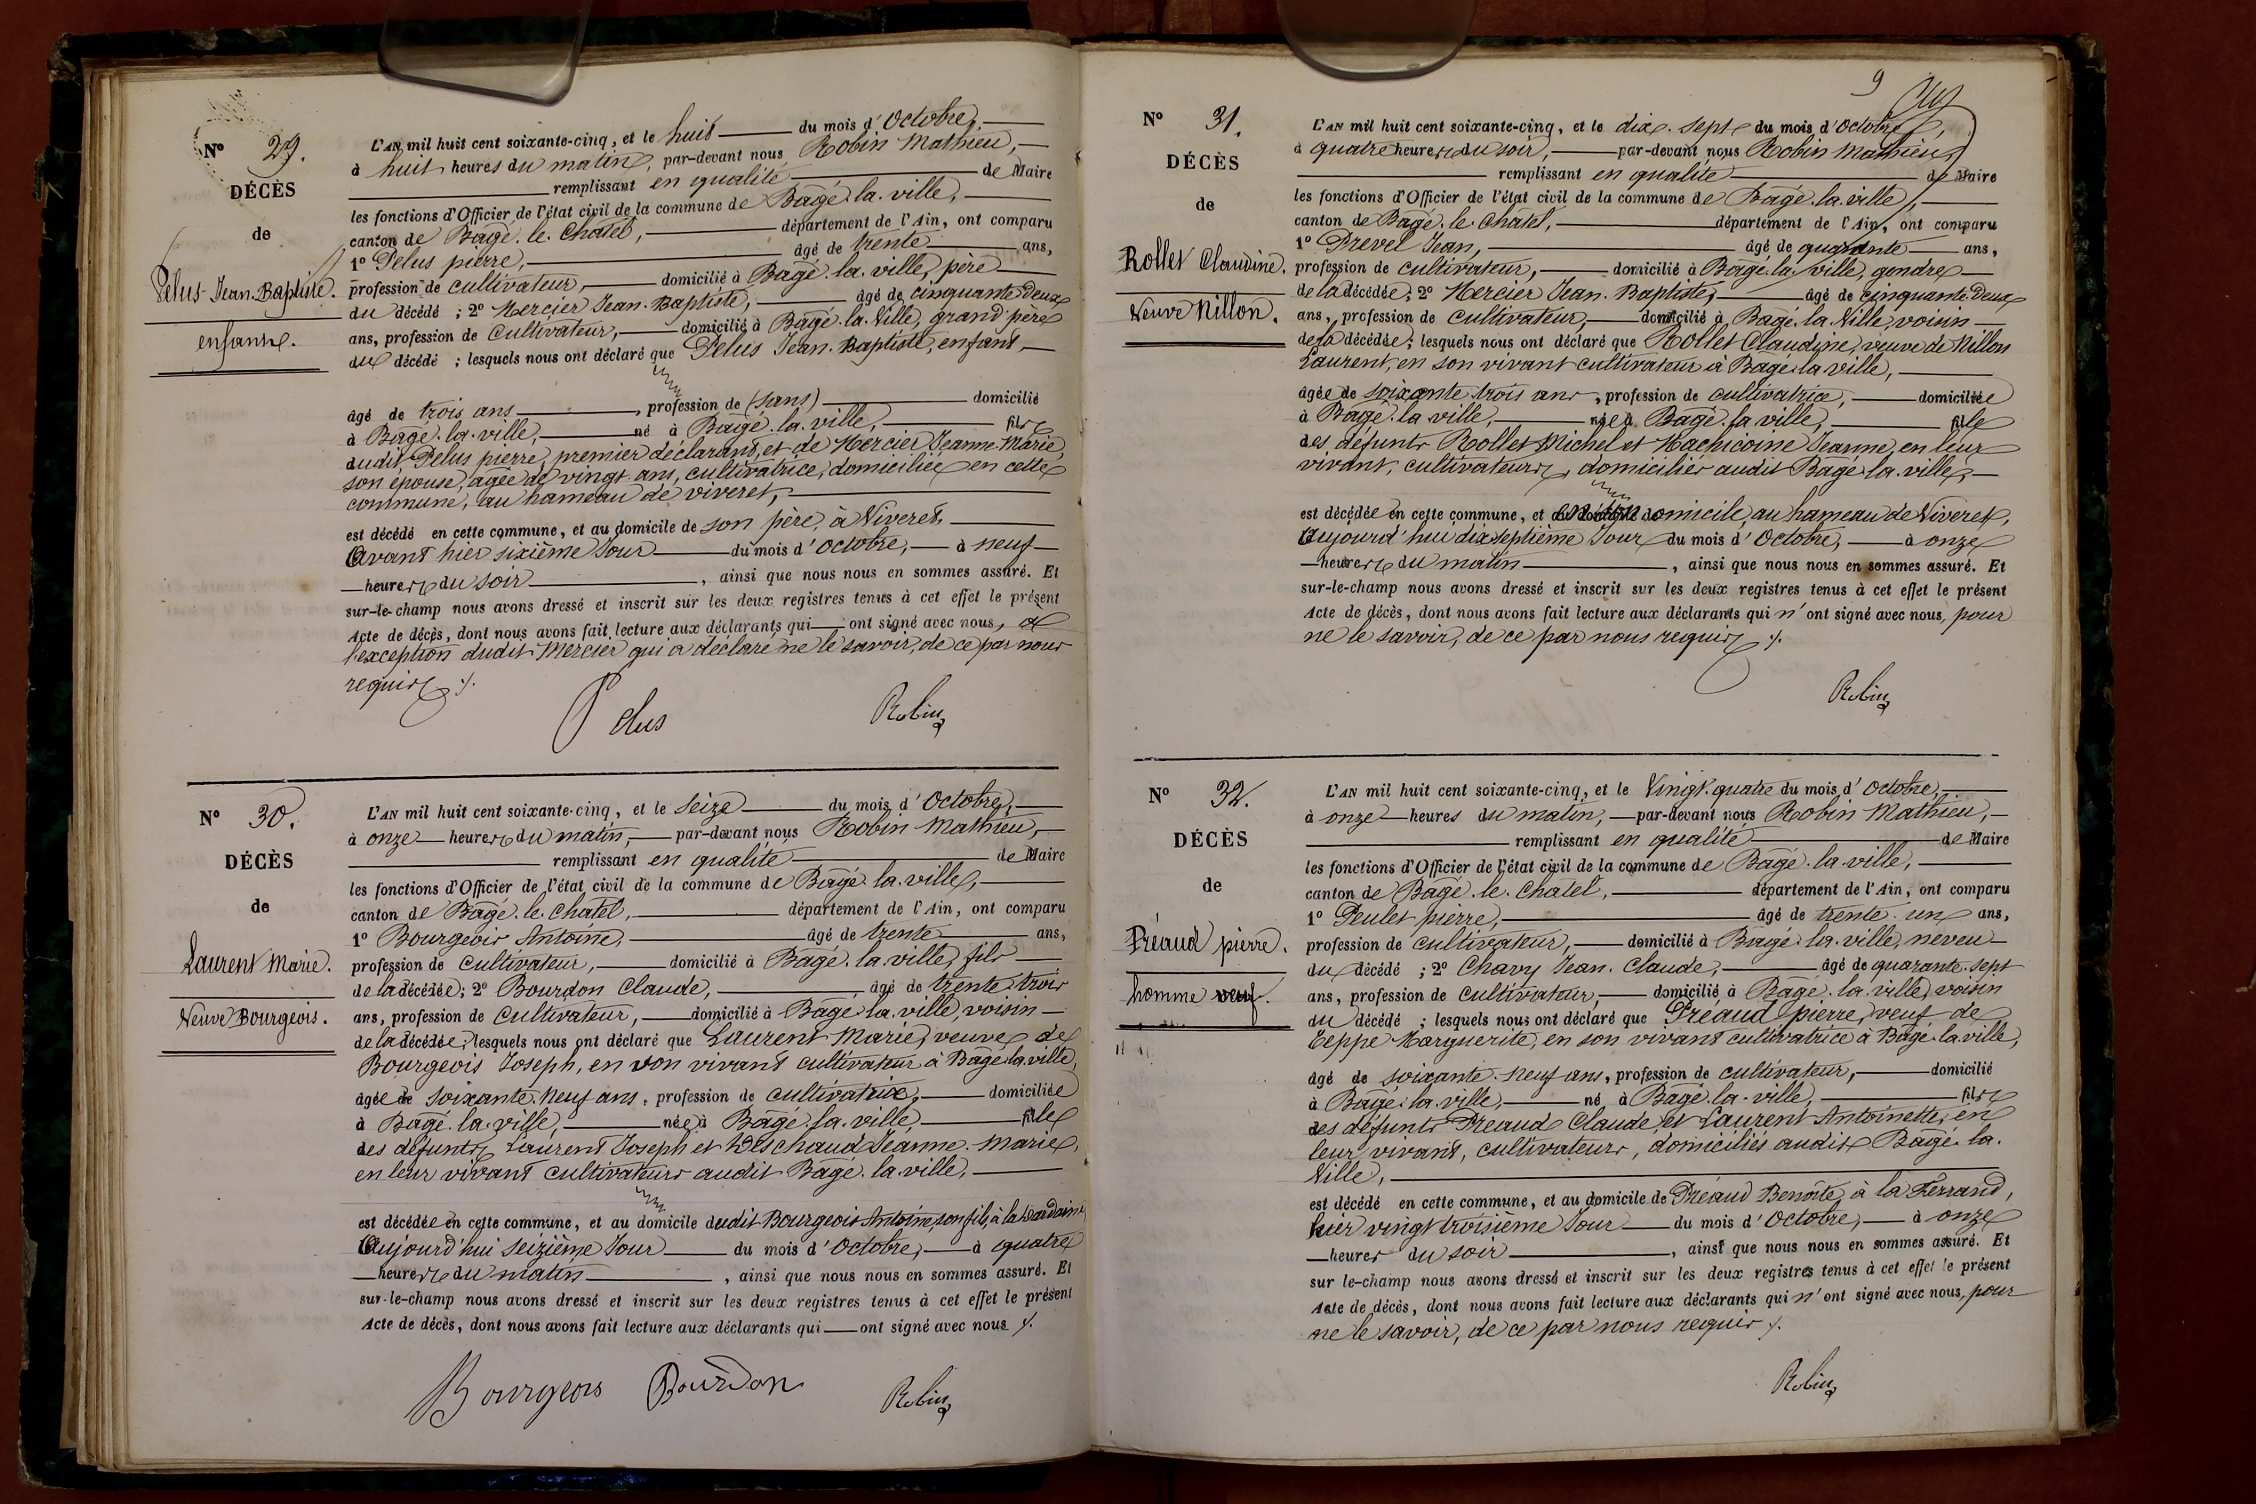 Nº 29.
DÉCÈS
de
Pelus Jean-Baptiste.
enfant.
L'AN mil huit cent soixante-cinq, et le huit du mois d'Octobre,
à huit heures du matin, par-devant nous Robin Mathieu,
remplissant en qualité de Maire
les fonctions d'Officier de l'état civil de la commune de Bâgé-la-ville,
canton de Bâgé-le-Châtel, département de l'Ain, ont comparu
1º Pelus pierre, âgé de trente ans,
profession de cultivateur, domicilié à Bâgé-la-ville, père
du décédé ; 2º Mercier Jean-Baptiste, âgé de cinquante-Deux
ans, profession de Cultivateur, domicilié à Bâgé-la-Ville, grand père
du décédé ; lesquels nous ont déclaré que Pelus Jean-Baptiste, enfant,
âgé de trois ans, profession de (sans) domicilié
à Bâgé-la-ville, né à Bâgé-la-ville, fils
dudit Pelus pierre, premier déclarant, et de Mercier Jeanne-Marie,
son épouse, âgée de vingt ans, cultivatrice, domiciliée en cette
commune, au hameau de viveret,
est décédé en cette commune, et au domicile de son père, à Viveret,
Avant hier sixième Jour du mois d'Octobre, à neuf
heures du soir, ainsi que nous nous en sommes assuré. Et
sur-le-champ nous avons dressé et inscrit sur les deux registres tenus à cet effet le présent
Acte de décès, dont nous avons fait lecture aux déclarants qui ont signé avec nous, à
l'exception dudit Mercier qui a déclaré ne le savoir, de ce par nous
requis ./.
Pelus Robin
Nº 30.
DÉCÈS
de
Laurent Marie.
Veuve Bourgeois.
L'AN mil huit cent soixante-cinq, et le seize du mois d'Octobre,
à onze heures du matin, par-devant nous Robin Mathieu,
remplissant en qualité de Maire
les fonctions d'Officier de l'état civil de la commune de Bâgé-la-ville,
canton de Bâgé-le-Châtel, département de l'Ain, ont comparu
1º Bourgeois Antoine, âgé de trente ans,
profession de cultivateur, domicilié à Bâgé-la-ville, fils
de la décédée ; 2º Bourdon Claude, âgé de trente-trois
ans, profession de Cultivateur, domicilié à Bâgé-la-ville, voisin
de la décédée ; lesquels nous ont déclaré que Laurent Marie, veuve de
Bourgeois Joseph, en son vivant cultivateur à Bâgé-la-ville,
âgée de soixante-neuf ans, profession de cultivatrice, domiciliée
à Bâgé-la-ville, née à Bâgé-la-ville, fille
des défunts Laurent Joseph et Jeanne-Marie,
en leur vivant cultivateurs audit Bâgé-la-ville,
est décédée en cette commune, et au domicile dudit Bourgeois Antoine, son fils, à la
Aujourd'hui seizième Jour du mois d'Octobre, à quatre
heures du matin, ainsi que nous nous en sommes assuré. Et
sur-le-champ nous avons dressé et inscrit sur les deux registres tenus à cet effet le présent
Acte de décès, dont nous avons fait lecture aux déclarants qui ont signé avec nous ./.
Bourgeois Bourdon Robin
9
Nº 31.
DÉCÈS
de
Rollet Claudine.
Veuve Nillon.
L'AN mil huit cent soixante-cinq, et le dix-sept du mois d'Octobre,
à quatre heures du soir, par-devant nous Robin Mathieu,
remplissant en qualité de Maire
les fonctions d'Officier de l'état civil de la commune de Bâgé-la-ville,
canton de Bâgé-le-Châtel, département de l'Ain, ont comparu
1º Prevel Jean, âgé de quarante ans,
profession de cultivateur, domicilié à Bâgé-la-ville, gendre
de la décédée ; 2º Mercier Jean-Baptiste, âgé de cinquante-Deux
ans, profession de cultivateur, domicilié à Bâgé-la-Ville, voisin
de la décédée ; lesquels nous ont déclaré que Rollet Claudine, veuve de Nillon
Laurent, en son vivant cultivateur à Bâgé-la-ville,
âgée de soixante-trois ans, profession de cultivatrice, domiciliée
à Bâgé-la-ville, née à Bâgé-la-ville, fille
des défunts Rollet Michel et Jeanne, en leur
vivant, cultivateurs, domiciliés audit Bâgé-la-ville,
est décédée en cette commune, et en son domicile, au hameau de Viveret,
Aujourd'hui dix-septième Jour du mois d'Octobre, à onze
heures du matin, ainsi que nous nous en sommes assuré. Et
sur-le-champ nous avons dressé et inscrit sur les deux registres tenus à cet effet le présent
Acte de décès, dont nous avons fait lecture aux déclarants qui n'ont signé avec nous, pour
ne le savoir, de ce par nous requis ./.
Robin
Nº 32.
DÉCÈS
de
Préaud pierre.
homme veuf.
L'AN mil huit cent soixante-cinq, et le Vingt-quatre du mois d'Octobre,
à onze heures du matin, par-devant nous Robin Mathieu,
remplissant en qualité de Maire
les fonctions d'Officier de l'état civil de la commune de Bâgé-la-ville,
canton de Bâgé-le-Châtel, département de l'Ain, ont comparu
1º Peulet pierre, âgé de trente-un ans,
profession de cultivateur, domicilié à Bâgé-la-ville, neveu
du décédé ; 2º Chavy Jean-Claude, âgé de quarante-sept
ans, profession de Cultivateur, domicilié à Bâgé-la-ville, voisin
du décédé ; lesquels nous ont déclaré que Préaud pierre, veuf de
Teppe Marguerite, en son vivant cultivatrice à Bâgé-la-ville,
âgé de soixante-neuf ans, profession de cultivateur, domicilié
à Bâgé-la-ville, né à Bâgé-la-ville, fils
des défunts Préaud Claude et Laurent Antoinette, en
leur vivant, cultivateurs, domiciliés audit Bâgé-la-
Ville,
est décédé en cette commune, et au domicile de Préaud Benoîte, à la Ferrand,
hier vingt-troisième Jour du mois d'Octobre, à onze
heures du soir, ainsi que nous nous en sommes assuré. Et
sur-le-champ nous avons dressé et inscrit sur les deux registres tenus à cet effet le présent
Acte de décès, dont nous avons fait lecture aux déclarants qui n'ont signé avec nous, pour
ne le savoir, de ce par nous requis ./.
Robin